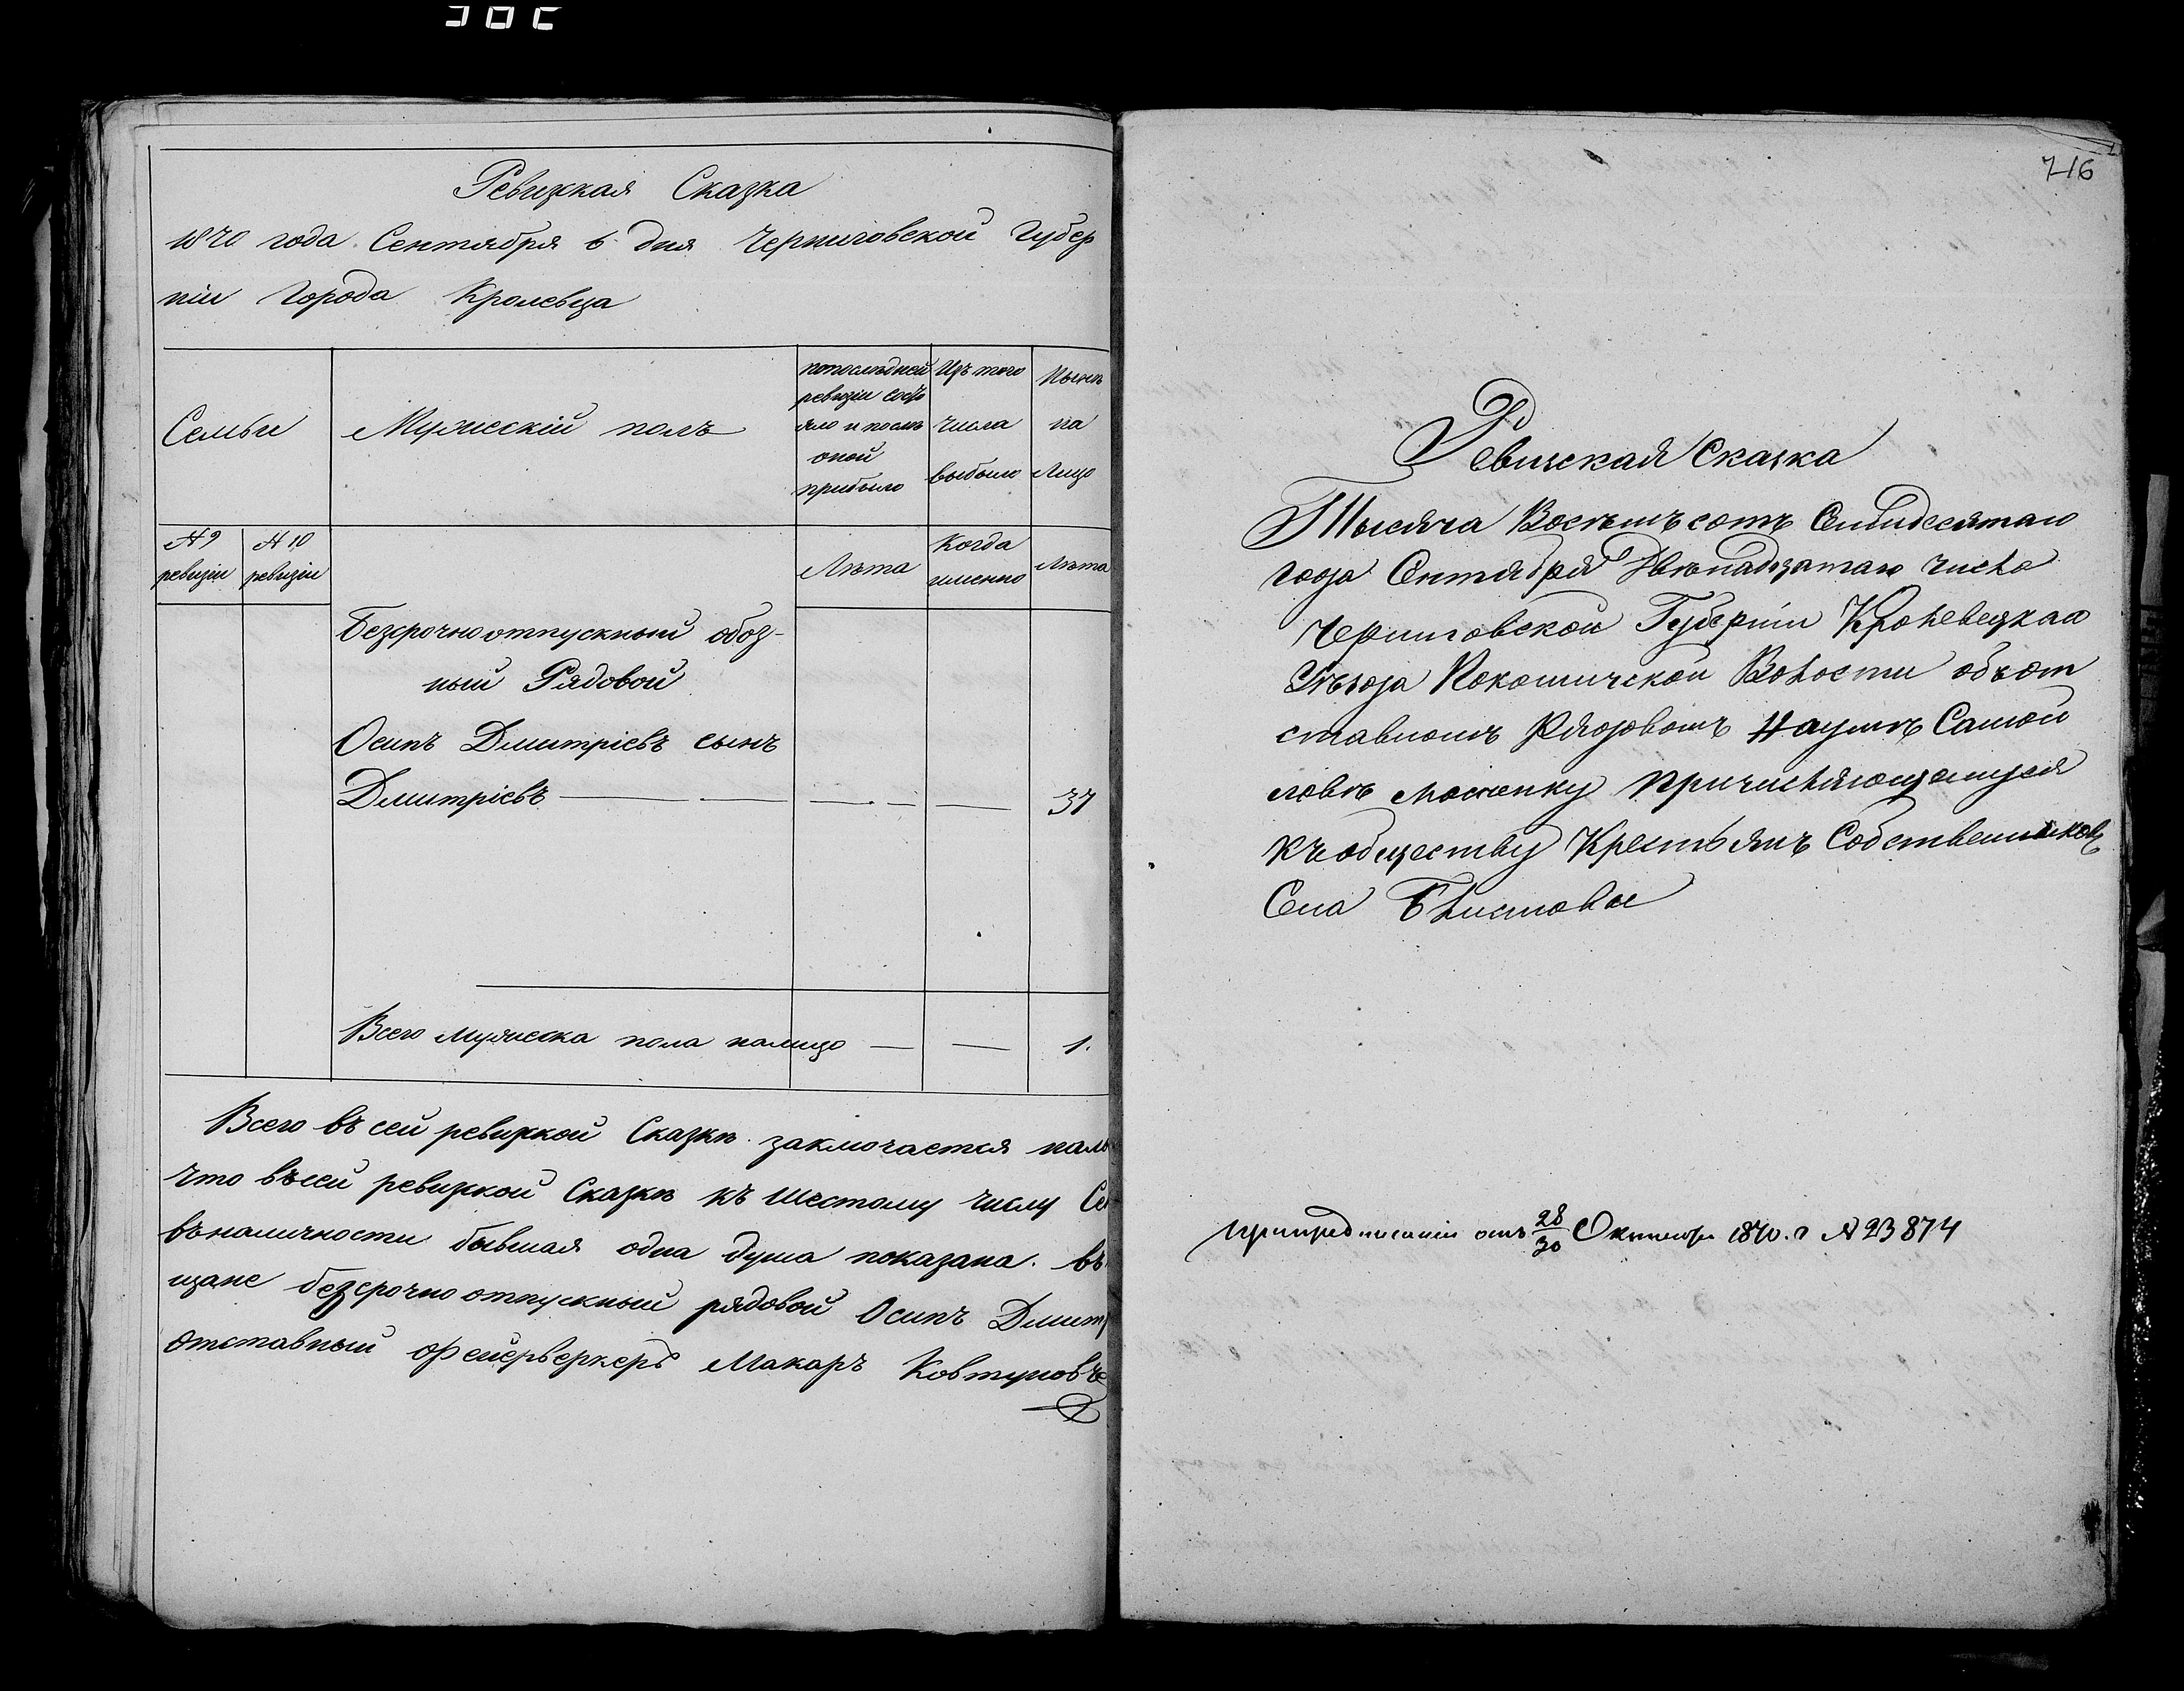 Ревизкая Сказка
1870 года Сентября 6 дня Черниговской Губер
ніи Города Кролевца
Семьи
Мужескій полъ
попослѣдней
ревизіи состо
яло и послѣ
оной
прибыло
Изъ того
числа
выбыло
Нынѣ
на
Лицо
№ 9
ревизіи
№ 10
ревизіи
Лѣта
Когда
именно
Лѣта
Безсрочноотпускный обоз-
ный Рядовой
Осипъ Дмитріевъ сынъ
Дмитріевъ — — — — — 37
Всего мужеска пола налицо — — 1.
Всего въ сей ревизкой Сказкѣ заключается
что въсей ревизкой Сказкѣ къ шестому числу Се
въналичности бывшая одна душа показана. въ
щане безсрочноотпускный рядовой Осипъ Дмит
Отставный Фейерверкеръ Макаръ Ковтуновъ
716
Ревизская Сказка
Тысяча Восѣмъсотъ Семидесятаго
года Сентября Двѣнадцатаго числа
Черниговской Губерніи Кролевецкаго
Уѣзда Волости объот
ставномъ Рядовомъ Наумѣ Самой
ловѣ причисляющемуся
къобществу Крестьянъ Собственниковъ
Села
припредписаніи отъ 28/30 Октября 1870. г № 23874